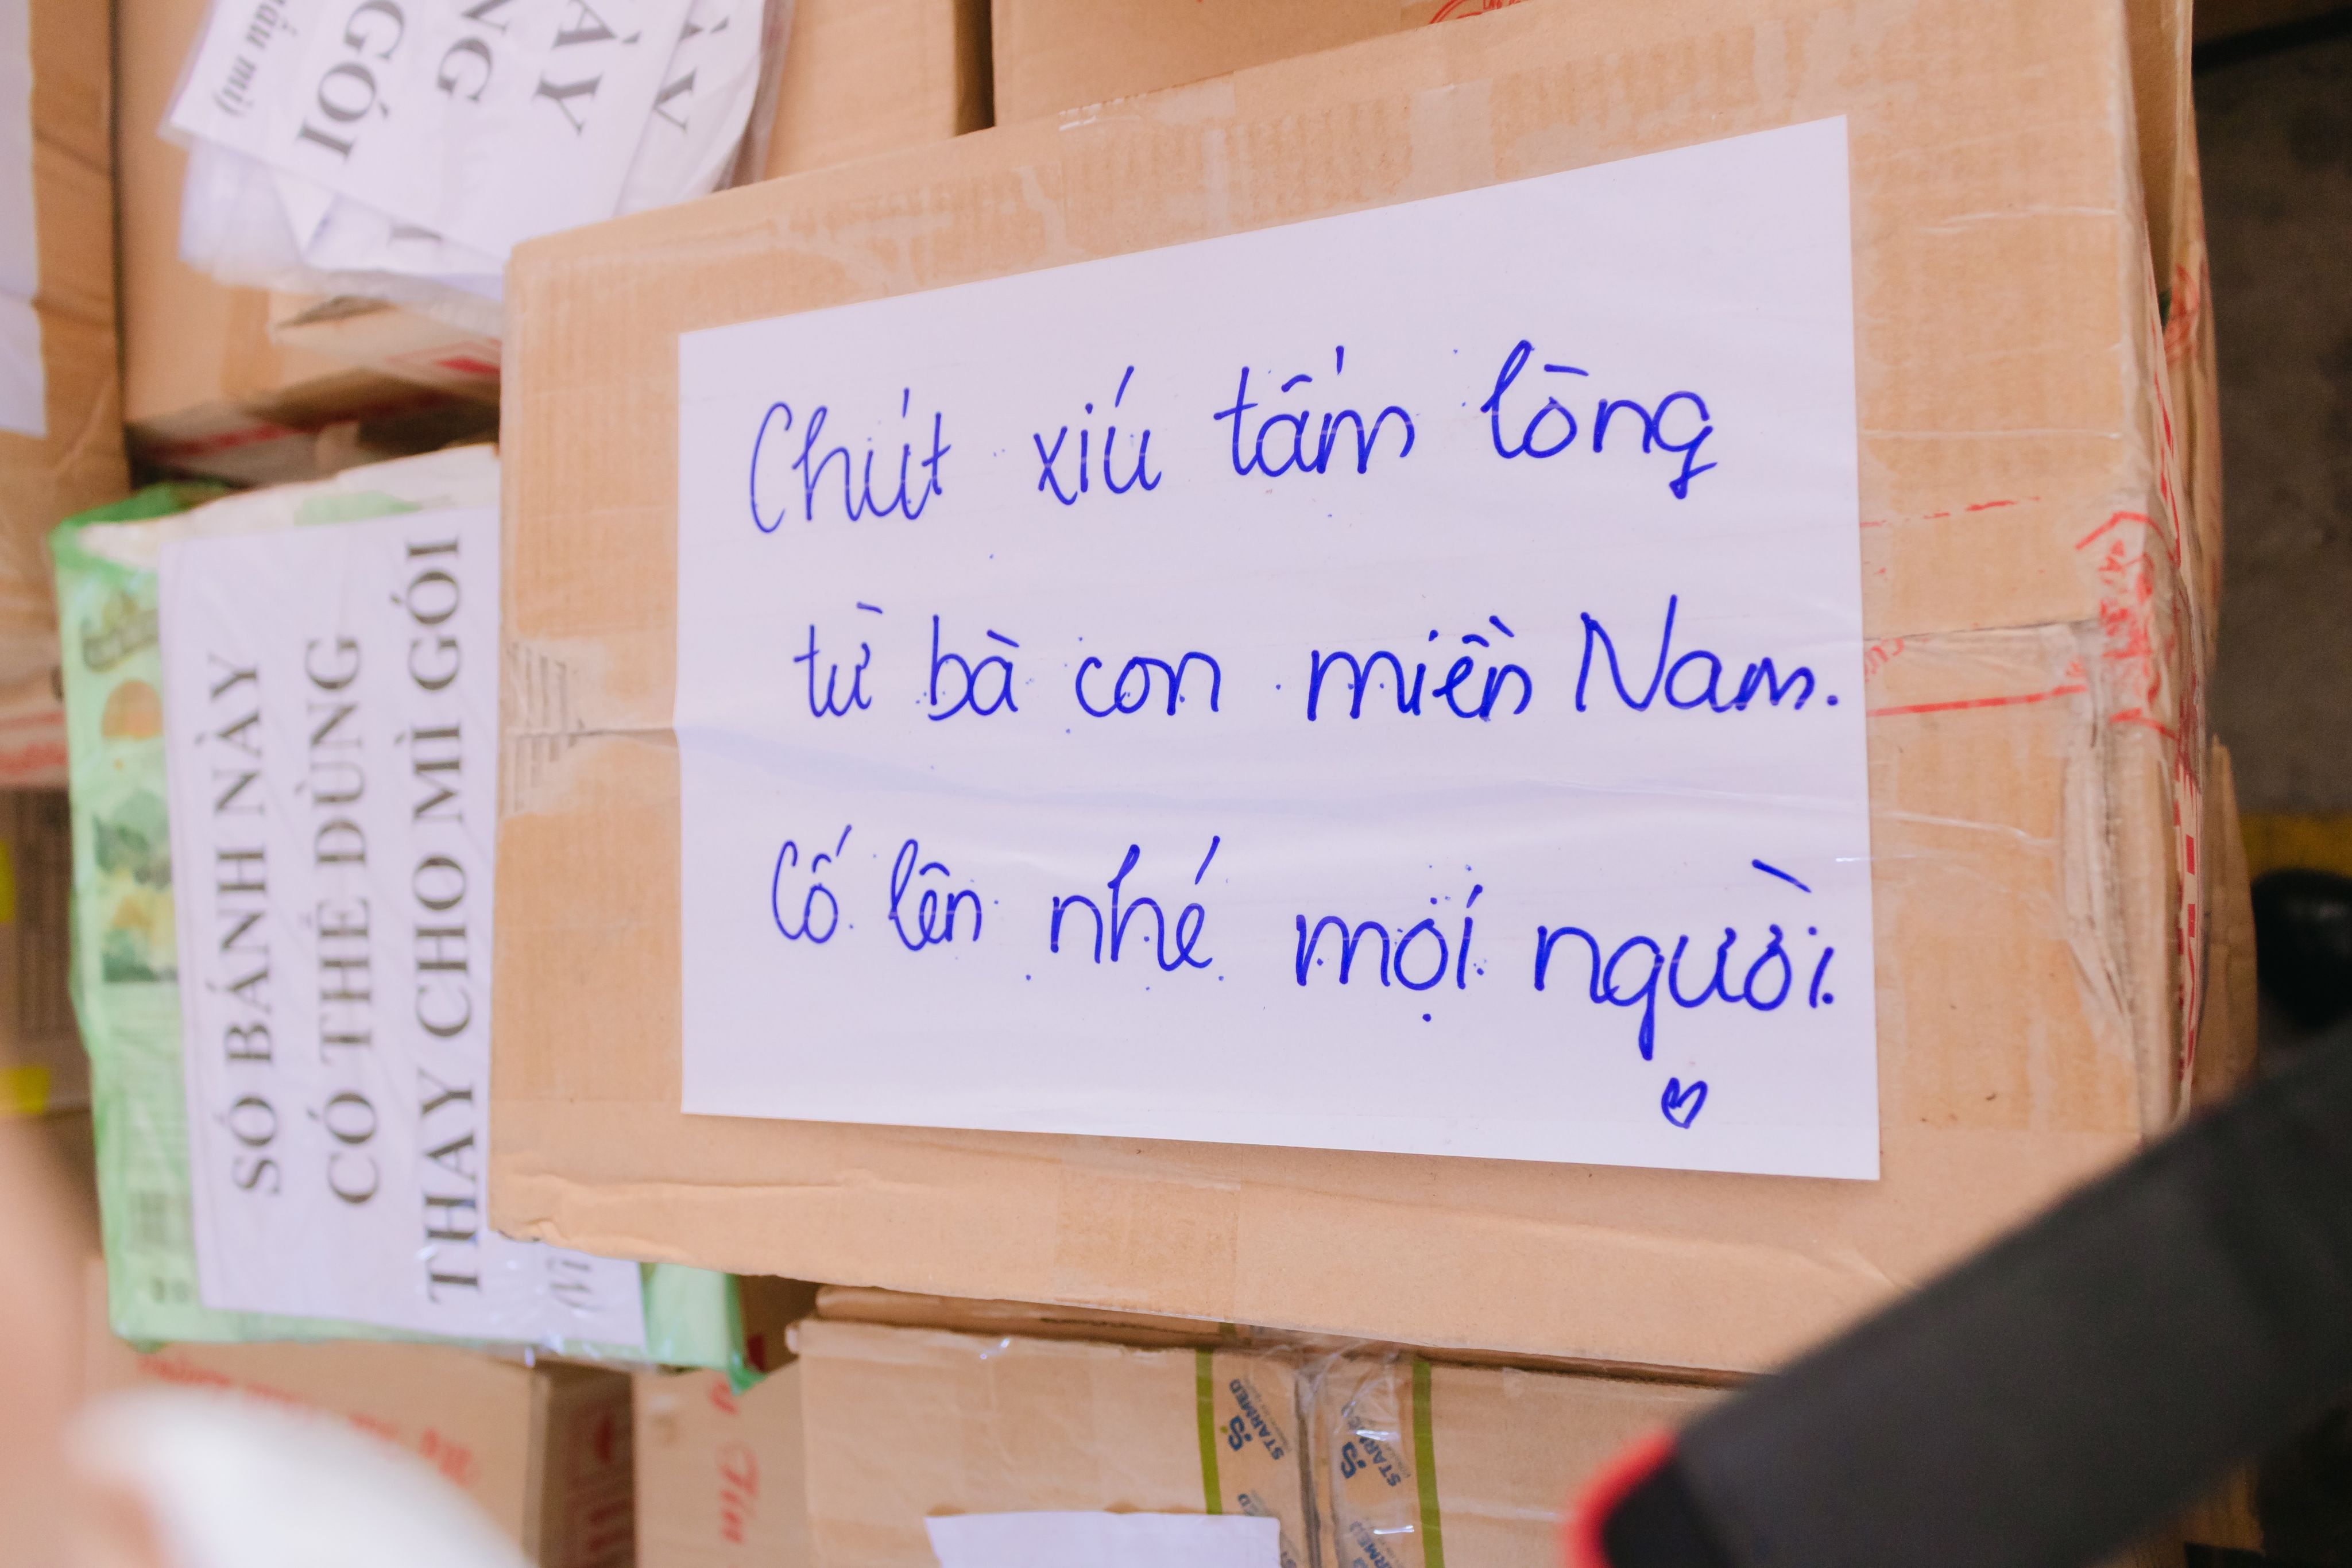 Chút xíu tấm lòng
từ bà con miền Nam.
Cố lên nhé mọi người.
SỐ BÁNH NÀY
CÓ THỂ DÙNG
THAY CHO MÌ GÓI
GÓI
STARMED
STARMED